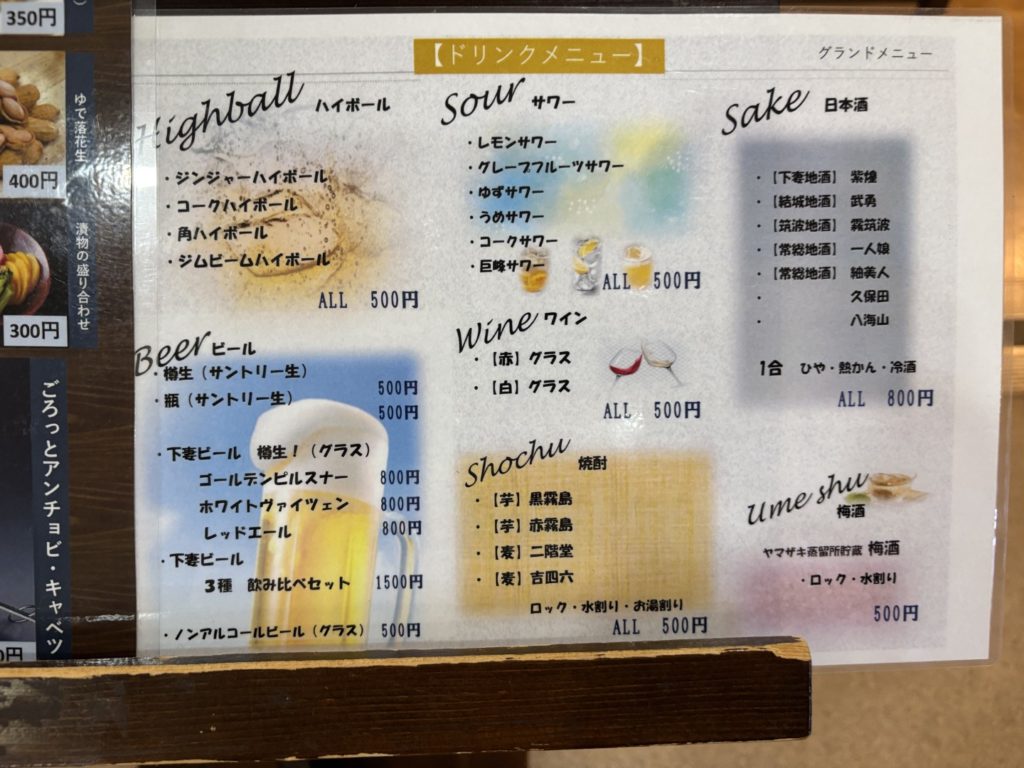 350円
ゆで落花生
400円
漬物の盛り合わせ
300円
ごろっとアンチョビ・キャベツ
0円
【ドリンクメニュー】
グランドメニュー
Highball ハイボール
・ジンジャーハイボール
・コークハイボール
・角ハイボール
・ジムビームハイボール
ALL 500円
Beer ビール
・樽生（サントリー生）
500円
・瓶（サントリー生）
500円
・下妻ビール 樽生！（グラス）
ゴールデンピルスナー 800円
ホワイトヴァイツェン 800円
レッドエール 800円
・下妻ビール
3種 飲み比べセット 1500円
・ノンアルコールビール（グラス） 500円
Sour サワー
・レモンサワー
・グレープフルーツサワー
・ゆずサワー
・うめサワー
・コークサワー
・巨峰サワー
ALL 500円
Wine ワイン
・【赤】グラス
・【白】グラス
ALL 500円
Shochu 焼酎
・【芋】黒霧島
・【芋】赤霧島
・【麦】二階堂
・【麦】吉四六
ロック・水割り・お湯割り
ALL 500円
Sake 日本酒
・【下妻地酒】 紫煌
・【結城地酒】 武勇
・【筑波地酒】 霧筑波
・【常総地酒】 一人娘
・【常総地酒】 紬美人
・ 久保田
・ 八海山
1合 ひや・熱かん・冷酒
ALL 800円
Ume shu
梅酒
ヤマザキ蒸留所貯蔵 梅酒
・ロック・水割り
500円